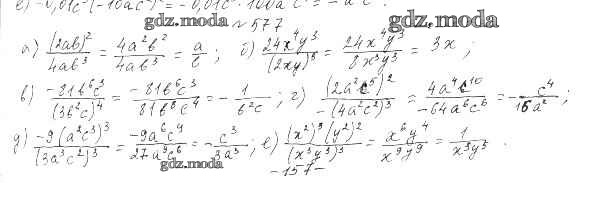 е) -0,01c² (-10ac²)² = -0,01c² · 100a²c⁴ = -a²c⁶.
gdz.moda
gdz.moda
№ 577
а) (2ab)²/4ab³ = 4a²b²/4ab³ = a/b ; б) 24x⁴y³/(2xy)³ = 24x⁴y³/8x³y³ = 3x ;
в) -81b⁶c³/(3b²c)⁴ = -81b⁶c³/81b⁸c⁴ = -1/b²c ; г) (2a²c⁵)²/-(4a²c²)³ = 4a⁴c¹⁰/-64a⁶c⁶ = -c⁴/16a² ;
д) -9(a²c³)³/(3a³c²)³ = -9a⁶c⁹/27a⁹c⁶ = -c³/3a³ ; е) (x²)³(y²)²/(x³y³)³ = x⁶y⁴/x⁹y⁹ = 1/x³y⁵ .
gdz.moda
-157-